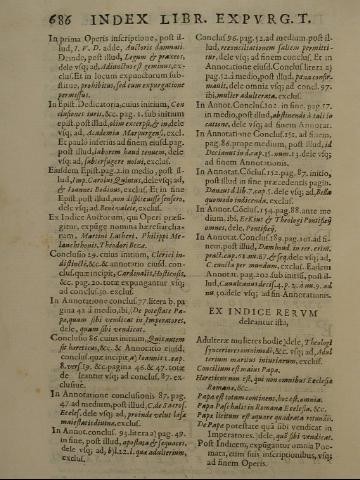 686 INDEX LIBR. EXPVRG. T.
In prima Operis inscriptione, post il-
lud, I. V. D. adde, Auctoris damnati.
Deinde, post illud, Legum & praxes,
dele vsq; ad, Adiunctos & geminus, ex-
clus. Et in locum expunctorum sub-
stitue, prohibitus, sed cum expurgatione
permissus.
In Epist. Dedicatoria, cuius initium, Con
clusiones iuris, &c. pag. 1. sub initium
epist. post illud, olim euersis, & in dele
vsq; ad, Academia Marpurgensi, excl.
Et paulò inferius ad finem eiusd. pag.
post illud, laborem haud tenuem, dele
vsq; ad, subterfugere nolui, exclus.
Eiusdem Epist. pag. 2. in medio, post il-
lud, Imp. Carolus Quintus, dele vsq; ad,
& Ioannes Bodinus, exclus. Et in fine
Epist. post illud, non displicuisse sensero,
dele vsq; ad, Bene valete, exclus.
Ex Indice Auctorum, qui Operi præfi-
gitur, expunge nomina hæresiarcha-
rum, Martini Lutheri, Philippi Me-
lanchthonis, Theodori Bezæ.
Conclusio 29. cuius initium, Clerici in-
distinctè, &c. & annotatio eiusd. con-
clus. quæ incipit, Cardinalis, Hostiensis,
&c. pag. 20. totæ expungantur vsq;
ad conclus. 30. exclus.
In Annotatione conclus. 77. litera b. pa
gina 42 à medio, ibi, De potestate Pa-
pæ, quam sibi vendicat in Imperatores,
dele, quam sibi vendicat.
Conclusio 86. cuius initium, Quis autem
sit hæreticus, &c. & Annotatio eiusd.
conclus. quæ incipit, a) Ioannis 1. cap.
8. vers. 19. &c. pagina 46. & 47. totæ
de leantur vsq; ad conclus. 87. ex-
clusiuè.
In Annotatione conclusionis 87. pag.
47. ad medium, post illud, C. de Sacros.
Eccles. dele vsq; ad, proinde velut læsæ
maiestatis diuinæ, exclus.
In Annot. conclus. 94. litera a) pag. 49.
in fine, post illud, apostatæ & sequaces,
dele vsq; ad, b) l. 2. i. quæ adulterium,
exclus.
Conclus. 96. pag. 52. ad medium, post il-
lud, reconciliationem saltem permitti-
tur, dele vsq; ad finem conclus. Et in
Annotatione eiusd. Conclus. litera a)
pag. 52. à medio, post illud, pœna confir-
mantis, dele omnia vsq; ad concl. 97.
ibi, mulier adulterata. exclus.
In Annot. Conclus. 102. in fine, pag. 57.
in medio, post illud, abstinendo à tali in
casu, dele vsq; ad finem Annotat.
In Annotatione Conclus. 151. à finem,
pag. 86. prope medium, post illud, id
Decianus in d. cap. 15. num. 13. dele vsq;
ad finem Annotationis.
In Annotat. Cõclus. 152. pag. 87. initio,
post illud in fine præcedentis pagin.
Danæus d. lib. 7. cap. 5. dele vsq; ad, Bella
quomodo indicenda, exclus.
In Annot. Cõclus. 154. pag. 88. ante me
dium, ibi, Et Iuris & Theologi Pontificij
omnes, dele, Pontificij.
In Annotat. Conclus. 189. pag. 101. ad fi-
nem, post illud, Damhoud. in rer. crim.
pract. cap. 61. nu. 67. & seq. dele vsq; ad,
C. cuncta per mundum, exclus. Eadem
Annotat. pag. 202. sub initiũ, post il-
lud, Caualcanus deciss. 4. p. 2. à nu. 9. ad
nu. 50. dele vsq; ad fin. Annotationis.
EX INDICE RERVM
deleantur ista,
Adulteræ mulieres hodie) dele, Theologi
seueriores immiscendo, &c. vsq; ad, Adul
terium maritus iniuriarum, exclus.
Concilium est maius Papa.
Hæreticus non est, qui non omnibus Ecclesiæ
Romanæ, &c.
Papa est totum continens, hoc est, omnia.
Papa Passibalis in Romana Ecclesia, &c.
Papa licitum est aquare quadrata rotundis.
De Papæ potestate quã sibi vendicat in
Imperatores) dele, quã sibi vendicat.
Post Indicem, expũgantur omnia Poe-
mata, cum suis inscriptionibus, vsq;
ad finem Operis.